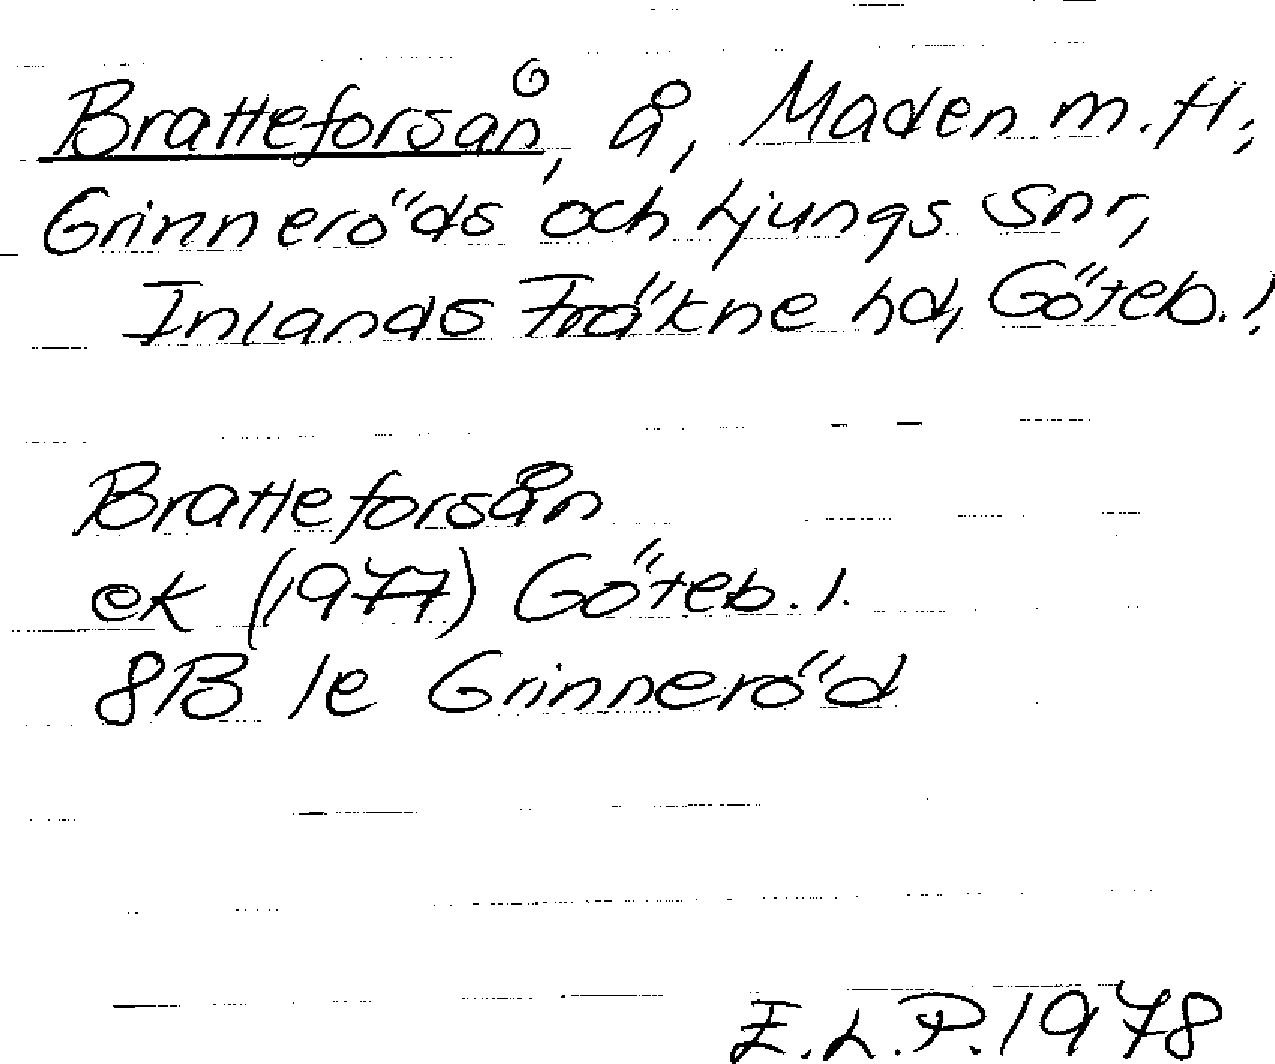 Bratteforsån, å, Maden m.fl.,
Grinneröds och Ljungs snr,
Inlands Fräkne hd, Göteb. l
Bratteforsån
ek (1977) Göteb. l.
8B 1e Grinneröd
E.L.P. 1978